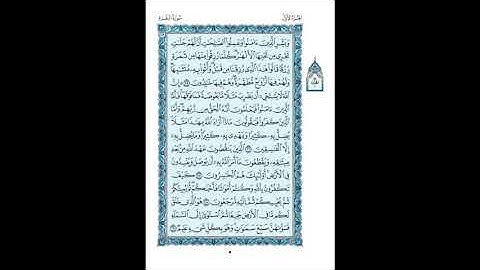 الجزء الأول سورة البقرة
وَبَشِّرِ ٱلَّذِينَ ءَامَنُوا۟ وَعَمِلُوا۟ ٱلصَّٰلِحَٰتِ أَنَّ لَهُمْ جَنَّٰتٍ
تَجْرِى مِن تَحْتِهَا ٱلْأَنْهَٰرُ كُلَّمَا رُزِقُوا۟ مِنْهَا مِن ثَمَرَةٍ
رِّزْقًا قَالُوا۟ هَٰذَا ٱلَّذِى رُزِقْنَا مِن قَبْلُ وَأُتُوا۟ بِهِۦ مُتَشَٰبِهًا
وَلَهُمْ فِيهَآ أَزْوَٰجٌ مُّطَهَّرَةٌ وَهُمْ فِيهَا خَٰلِدُونَ ۝٢٥ إِنَّ
ٱللَّهَ لَا يَسْتَحْىِۦٓ أَن يَضْرِبَ مَثَلًا مَّا بَعُوضَةً فَمَا فَوْقَهَا فَأَمَّا
ٱلَّذِينَ ءَامَنُوا۟ فَيَعْلَمُونَ أَنَّهُ ٱلْحَقُّ مِن رَّبِّهِمْ وَأَمَّا
ٱلَّذِينَ كَفَرُوا۟ فَيَقُولُونَ مَاذَآ أَرَادَ ٱللَّهُ بِهَٰذَا مَثَلًا
يُضِلُّ بِهِۦ كَثِيرًا وَيَهْدِى بِهِۦ كَثِيرًا وَمَا يُضِلُّ بِهِۦٓ
إِلَّا ٱلْفَٰسِقِينَ ۝٢٦ ٱلَّذِينَ يَنقُضُونَ عَهْدَ ٱللَّهِ مِنۢ بَعْدِ
مِيثَٰقِهِۦ وَيَقْطَعُونَ مَآ أَمَرَ ٱللَّهُ بِهِۦٓ أَن يُوصَلَ وَيُفْسِدُونَ
فِى ٱلْأَرْضِ أُو۟لَٰٓئِكَ هُمُ ٱلْخَٰسِرُونَ ۝٢٧ كَيْفَ
تَكْفُرُونَ بِٱللَّهِ وَكُنتُمْ أَمْوَٰتًا فَأَحْيَٰكُمْ ثُمَّ يُمِيتُكُمْ
ثُمَّ يُحْيِيكُمْ ثُمَّ إِلَيْهِ تُرْجَعُونَ ۝٢٨ هُوَ ٱلَّذِى خَلَقَ
لَكُم مَّا فِى ٱلْأَرْضِ جَمِيعًا ثُمَّ ٱسْتَوَىٰٓ إِلَى ٱلسَّمَآءِ
فَسَوَّىٰهُنَّ سَبْعَ سَمَٰوَٰتٍ وَهُوَ بِكُلِّ شَىْءٍ عَلِيمٌ ۝٢٩